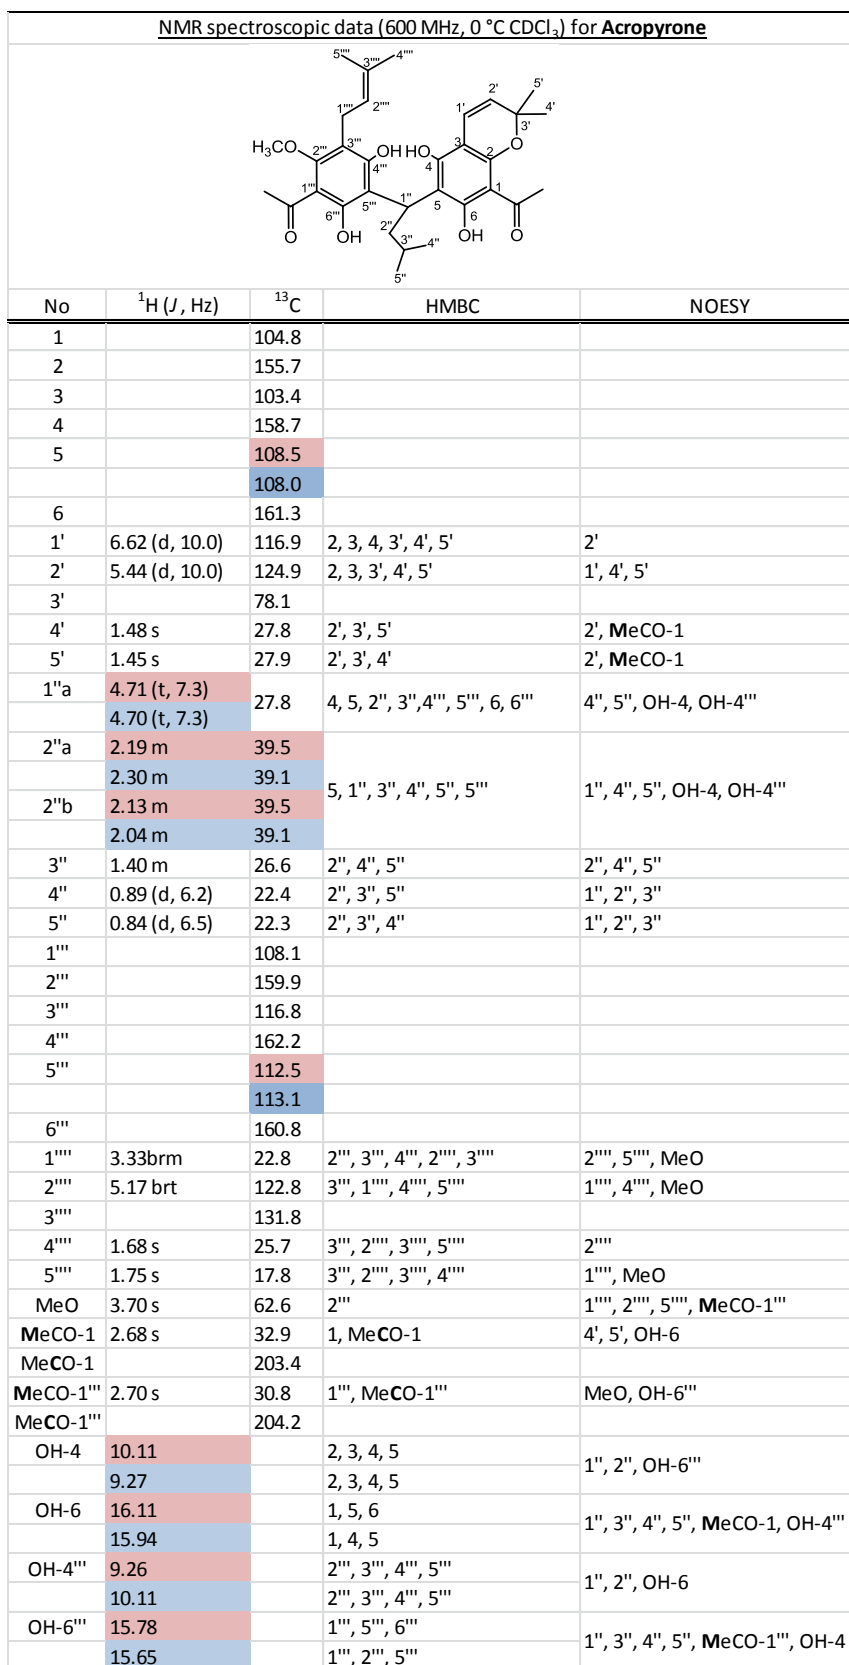 NMR spectroscopic data (600 MHz, 0 °C CDCl3) for Acropyrone
5'''' 4''''
3''''
1'''' 2'''' 1' 2' 5'
4'
3'
H3CO 2''' 3''' OH HO 4 3 2 O
4'''
1''' 1'' 1
6''' 5''' 5 6
O OH 2'' 3'' 4'' OH O
5''
No 1H (J, Hz) 13C HMBC NOESY
1 104.8
2 155.7
3 103.4
4 158.7
5 108.5
108.0
6 161.3
1' 6.62 (d, 10.0) 116.9 2, 3, 4, 3', 4', 5' 2'
2' 5.44 (d, 10.0) 124.9 2, 3, 3', 4', 5' 1', 4', 5'
3' 78.1
4' 1.48 s 27.8 2', 3', 5' 2', MeCO-1
5' 1.45 s 27.9 2', 3', 4' 2', MeCO-1
1''a 4.71 (t, 7.3) 27.8 4, 5, 2'', 3'',4''', 5''', 6, 6''' 4'', 5'', OH-4, OH-4'''
4.70 (t, 7.3)
2''a 2.19 m 39.5
2.30 m 39.1 5, 1'', 3'', 4'', 5'', 5''' 1'', 4'', 5'', OH-4, OH-4'''
2''b 2.13 m 39.5
2.04 m 39.1
3'' 1.40 m 26.6 2'', 4'', 5'' 2'', 4'', 5''
4'' 0.89 (d, 6.2) 22.4 2'', 3'', 5'' 1'', 2'', 3''
5'' 0.84 (d, 6.5) 22.3 2'', 3'', 4'' 1'', 2'', 3''
1''' 108.1
2''' 159.9
3''' 116.8
4''' 162.2
5''' 112.5
113.1
6''' 160.8
1'''' 3.33brm 22.8 2''', 3''', 4''', 2'''', 3'''' 2'''', 5'''', MeO
2'''' 5.17 brt 122.8 3''', 1'''', 4'''', 5'''' 1'''', 4'''', MeO
3'''' 131.8
4'''' 1.68 s 25.7 3''', 2'''', 3'''', 5'''' 2''''
5'''' 1.75 s 17.8 3''', 2'''', 3'''', 4'''' 1'''', MeO
MeO 3.70 s 62.6 2''' 1'''', 2'''', 5'''', MeCO-1'''
MeCO-1 2.68 s 32.9 1, MeCO-1 4', 5', OH-6
MeCO-1 203.4
MeCO-1''' 2.70 s 30.8 1''', MeCO-1''' MeO, OH-6'''
MeCO-1''' 204.2
OH-4 10.11 2, 3, 4, 5 1'', 2'', OH-6'''
9.27 2, 3, 4, 5
OH-6 16.11 1, 5, 6 1'', 3'', 4'', 5'', MeCO-1, OH-4'''
15.94 1, 4, 5
OH-4''' 9.26 2''', 3''', 4''', 5''' 1'', 2'', OH-6
10.11 2''', 3''', 4''', 5'''
OH-6''' 15.78 1''', 5''', 6''' 1'', 3'', 4'', 5'', MeCO-1''', OH-4
15.65 1''', 2''', 5'''